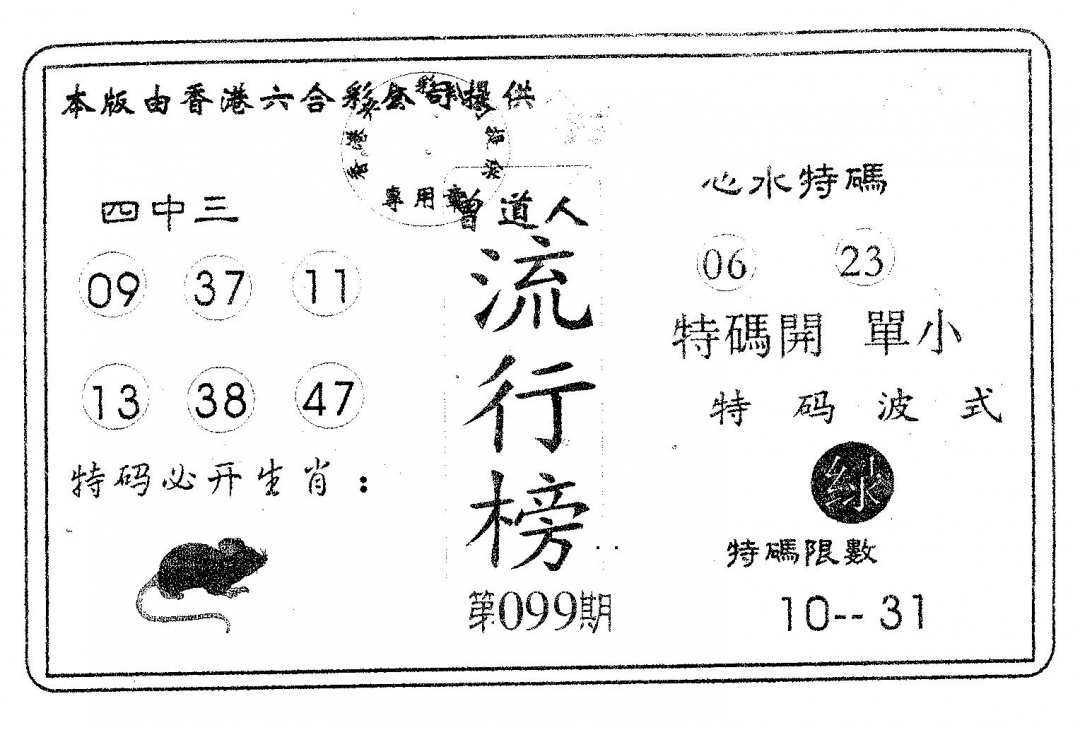 本版由香港六合彩公司提供
專用章
四中三
09 37 11
13 38 47
特码必开生肖：
曾道人
流行榜
第099期
心水特碼
06 23
特碼開 單小
特码波式
绿
特碼限數
10-- 31